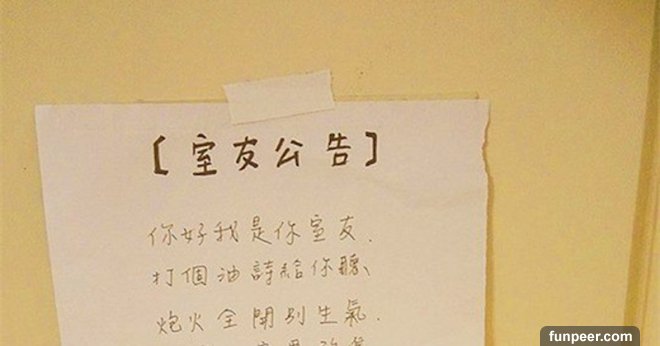 【室友公告】
你好我是你室友.
打個油詩給你聽、
炮火全開別生氣.
funpeer.com